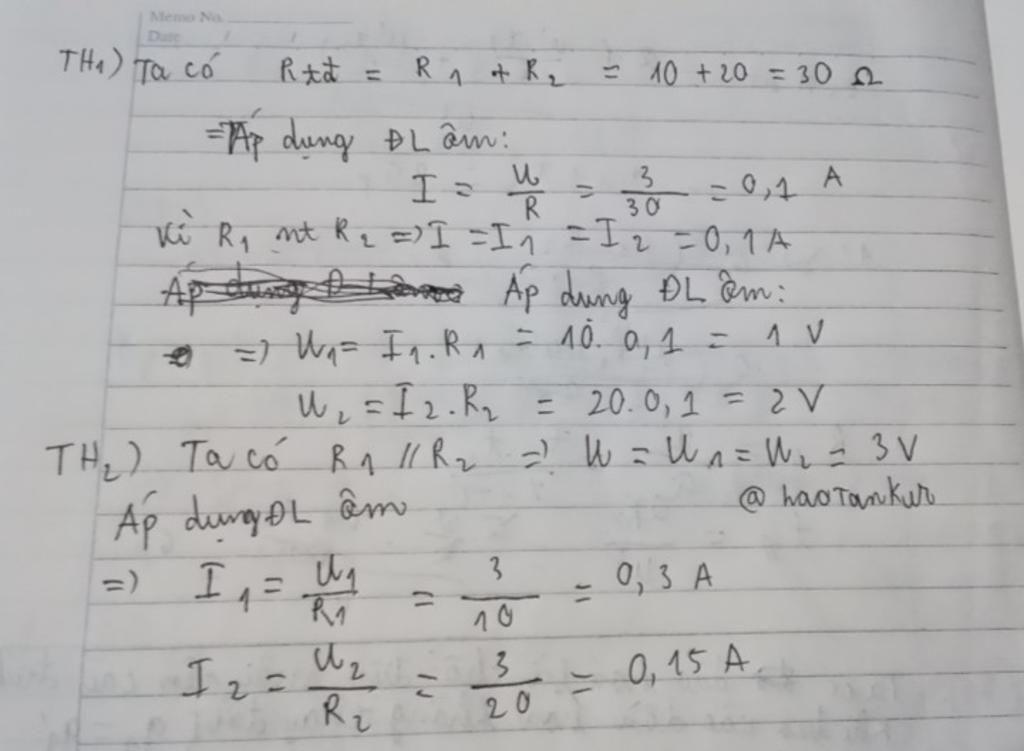 Memo No.
Date / /
TH1) Ta có Rtđ = R1 + R2 = 10 + 20 = 30 Ω
=> Áp dụng ĐL ôm:
I = U/R = 3/30 = 0,1 A
Vì R1 nt R2 => I = I1 = I2 = 0,1 A
Áp dụng ĐL ôm:
=> U1 = I1.R1 = 10.0,1 = 1 V
U2 = I2.R2 = 20.0,1 = 2V
TH2) Ta có R1 // R2 => U = U1 = U2 = 3V
@haoTankur
Áp dụng ĐL ôm
=> I1 = U1/R1 = 3/10 = 0,3 A
I2 = U2/R2 = 3/20 = 0,15 A